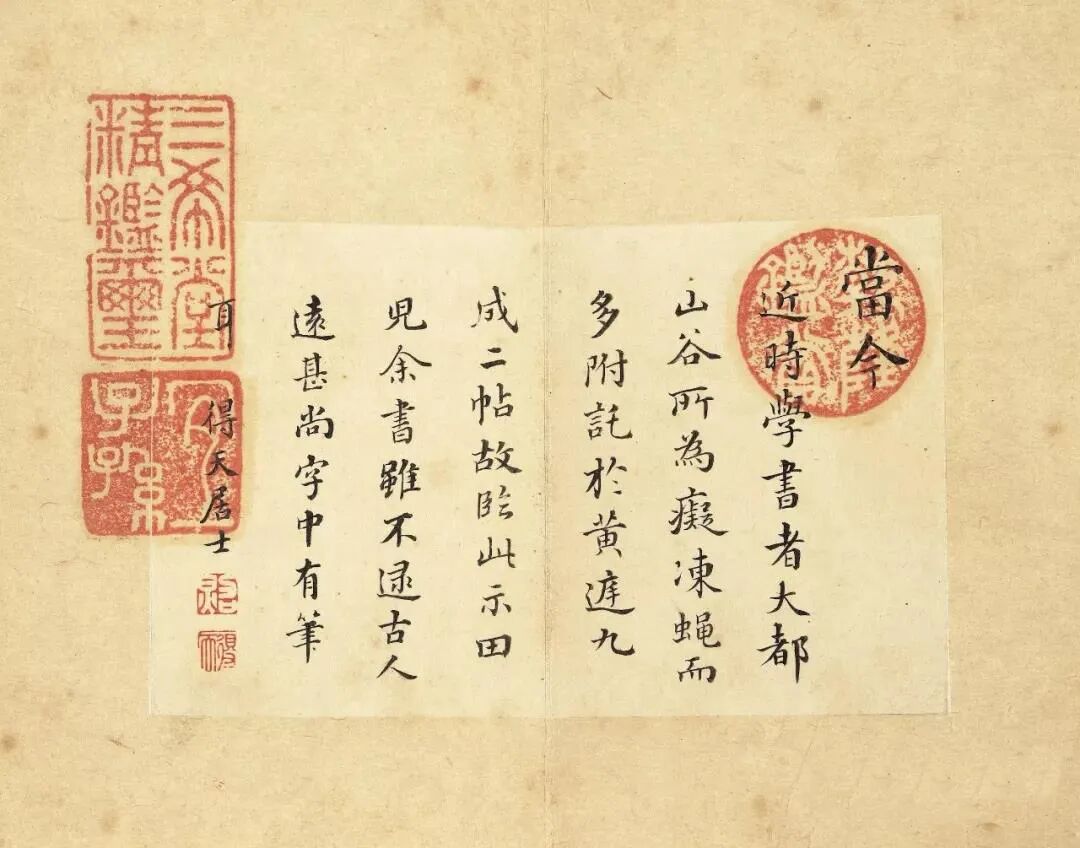 乾隆鑑賞
當今
近時學書者大都
山谷所為癡凍蠅而
多附託於黃庭九
成二帖故臨此示田
兒余書雖不逮古人
遠甚尚字中有筆
耳 得天居士
三希堂
精鑑璽
宜
子孫